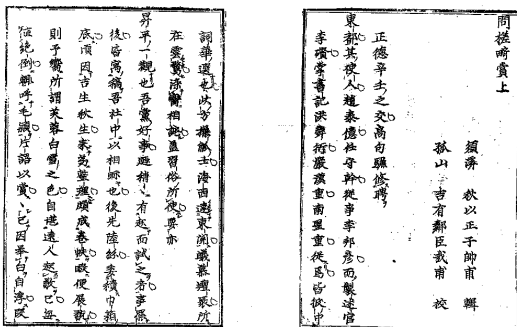 問槎畸賞上
須溪 秋以正子帥甫 輯
孤山 吉有鄰臣哉甫 校
正德辛卯之交高句驪修聘
東都其使人趙泰億任守幹從事李邦彥而製述官
李礥掌書記洪舜衍嚴漢重南聖重從焉皆彼中
詞華選也此方操觚士海西達東關蟻慕麕聚所
在雲鶩相誚蓋習俗所使要亦
昇平一觀也吾黨好事稍有起而試之者事罷
後皆寓稿吾社中以相眎也後先陸續委積巾箱
底頃因吉生秋生求為整理頗成卷帙暇便展觀
則予嚮所謂芙蓉白雪之色自堪遠人起敬已每
值絕倒輒呼毛穎片語以賞之已因舉白自浮既